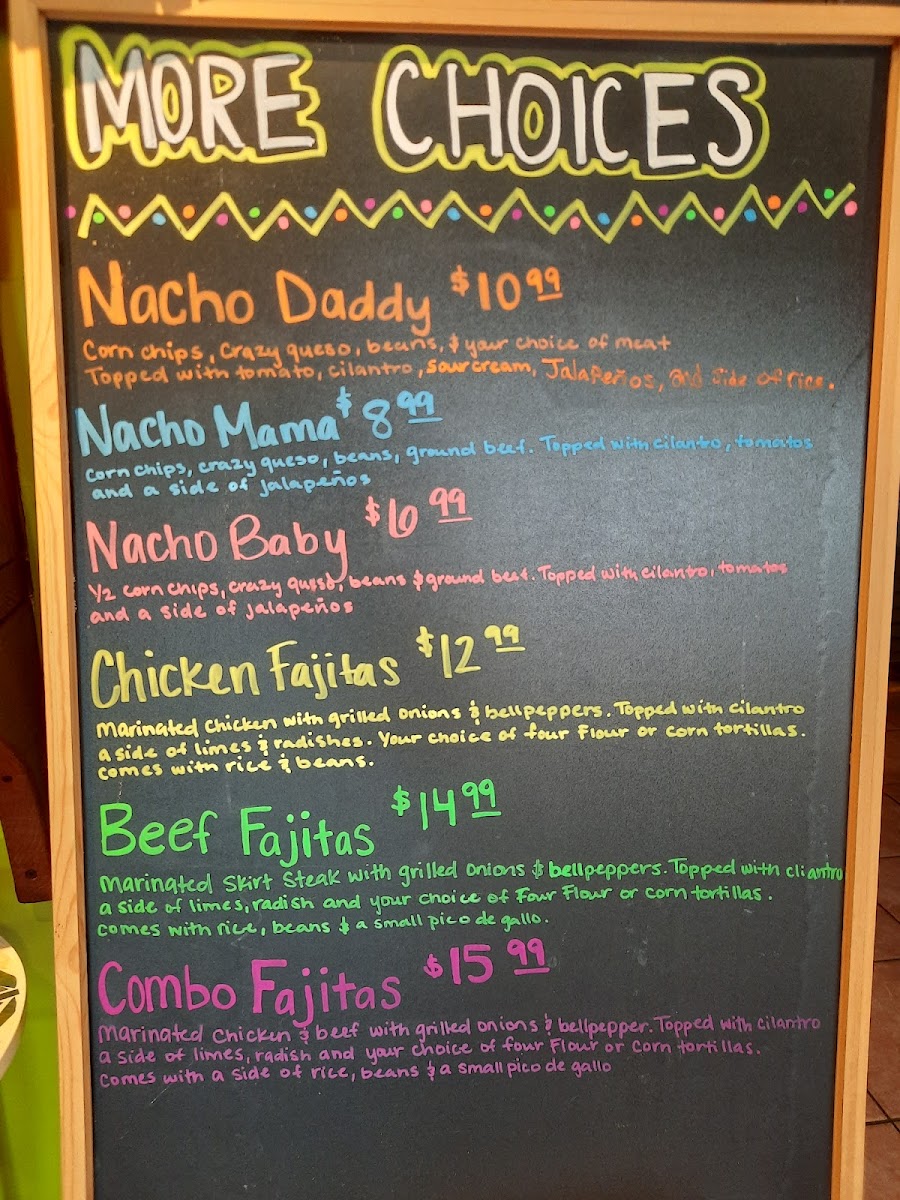 MORE CHOICES
Nacho Daddy $10 99
Corn chips, Crazy queso, beans, & your choice of meat
Topped with tomato, cilantro, sour cream, Jalapeños, and side of rice.
Nacho Mama $8 99
corn chips, crazy queso, beans, ground beef. Topped with cilantro, tomatos
and a side of jalapeños
Nacho Baby $6 99
1/2 corn chips, crazy queso, beans & ground beef. Topped with cilantro, tomatos
and a side of jalapeños
Chicken Fajitas $12 99
Marinated Chicken with grilled onions & bellpeppers. Topped with cilantro
a side of limes & radishes. Your choice of four Flour or corn tortillas.
comes with rice & beans.
Beef Fajitas $14 99
Marinated Skirt Steak with grilled onions & bellpeppers. Topped with cliantro
a side of limes, radish and your choice of Four Flour or corn tortillas.
comes with rice, beans & a small pico de gallo.
Combo Fajitas $15 99
Marinated Chicken & beef with grilled onions & bellpepper. Topped with cilantro
a side of limes, radish and your choice of four Flour or corn tortillas.
Comes with a side of rice, beans & a small pico de gallo